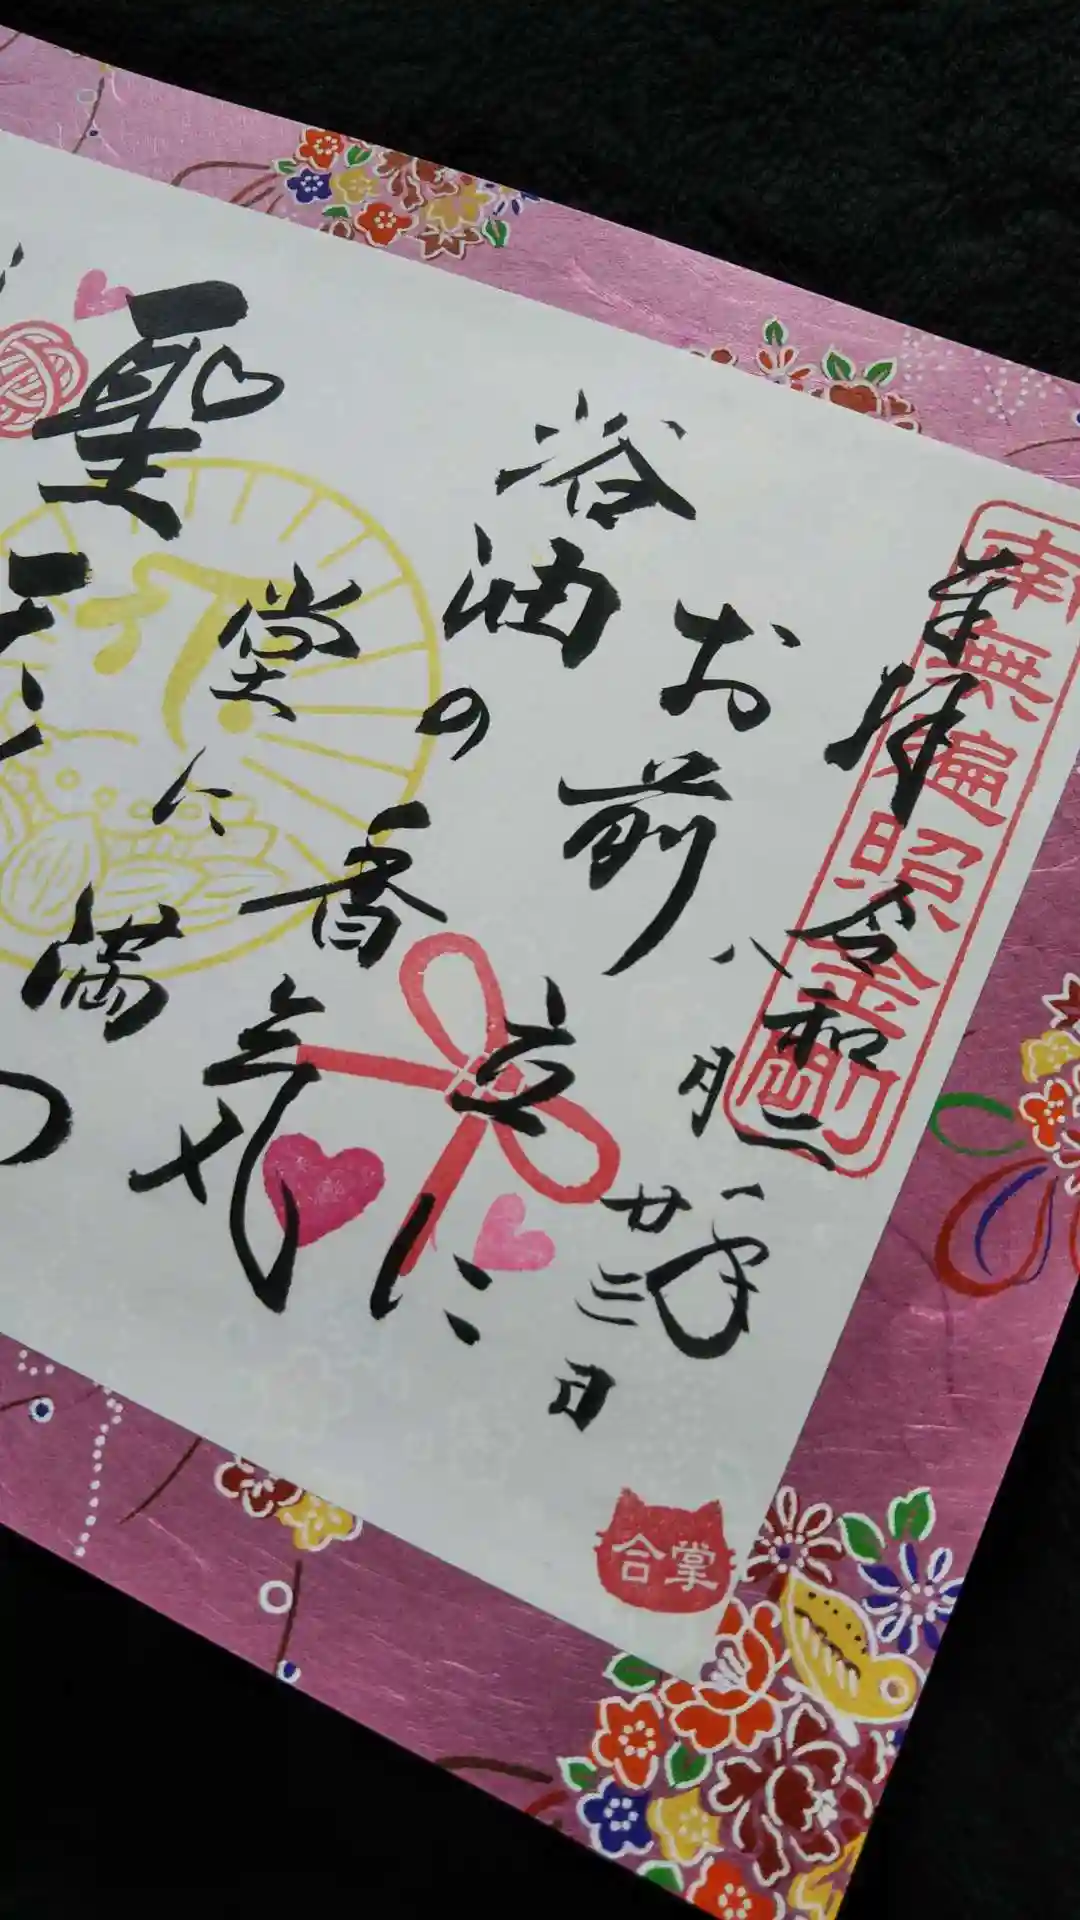 南無遍照金剛
奉拝
令和二年
八月廿三日
お前立に
浴油の香気
堂々満つ
聖天
合掌